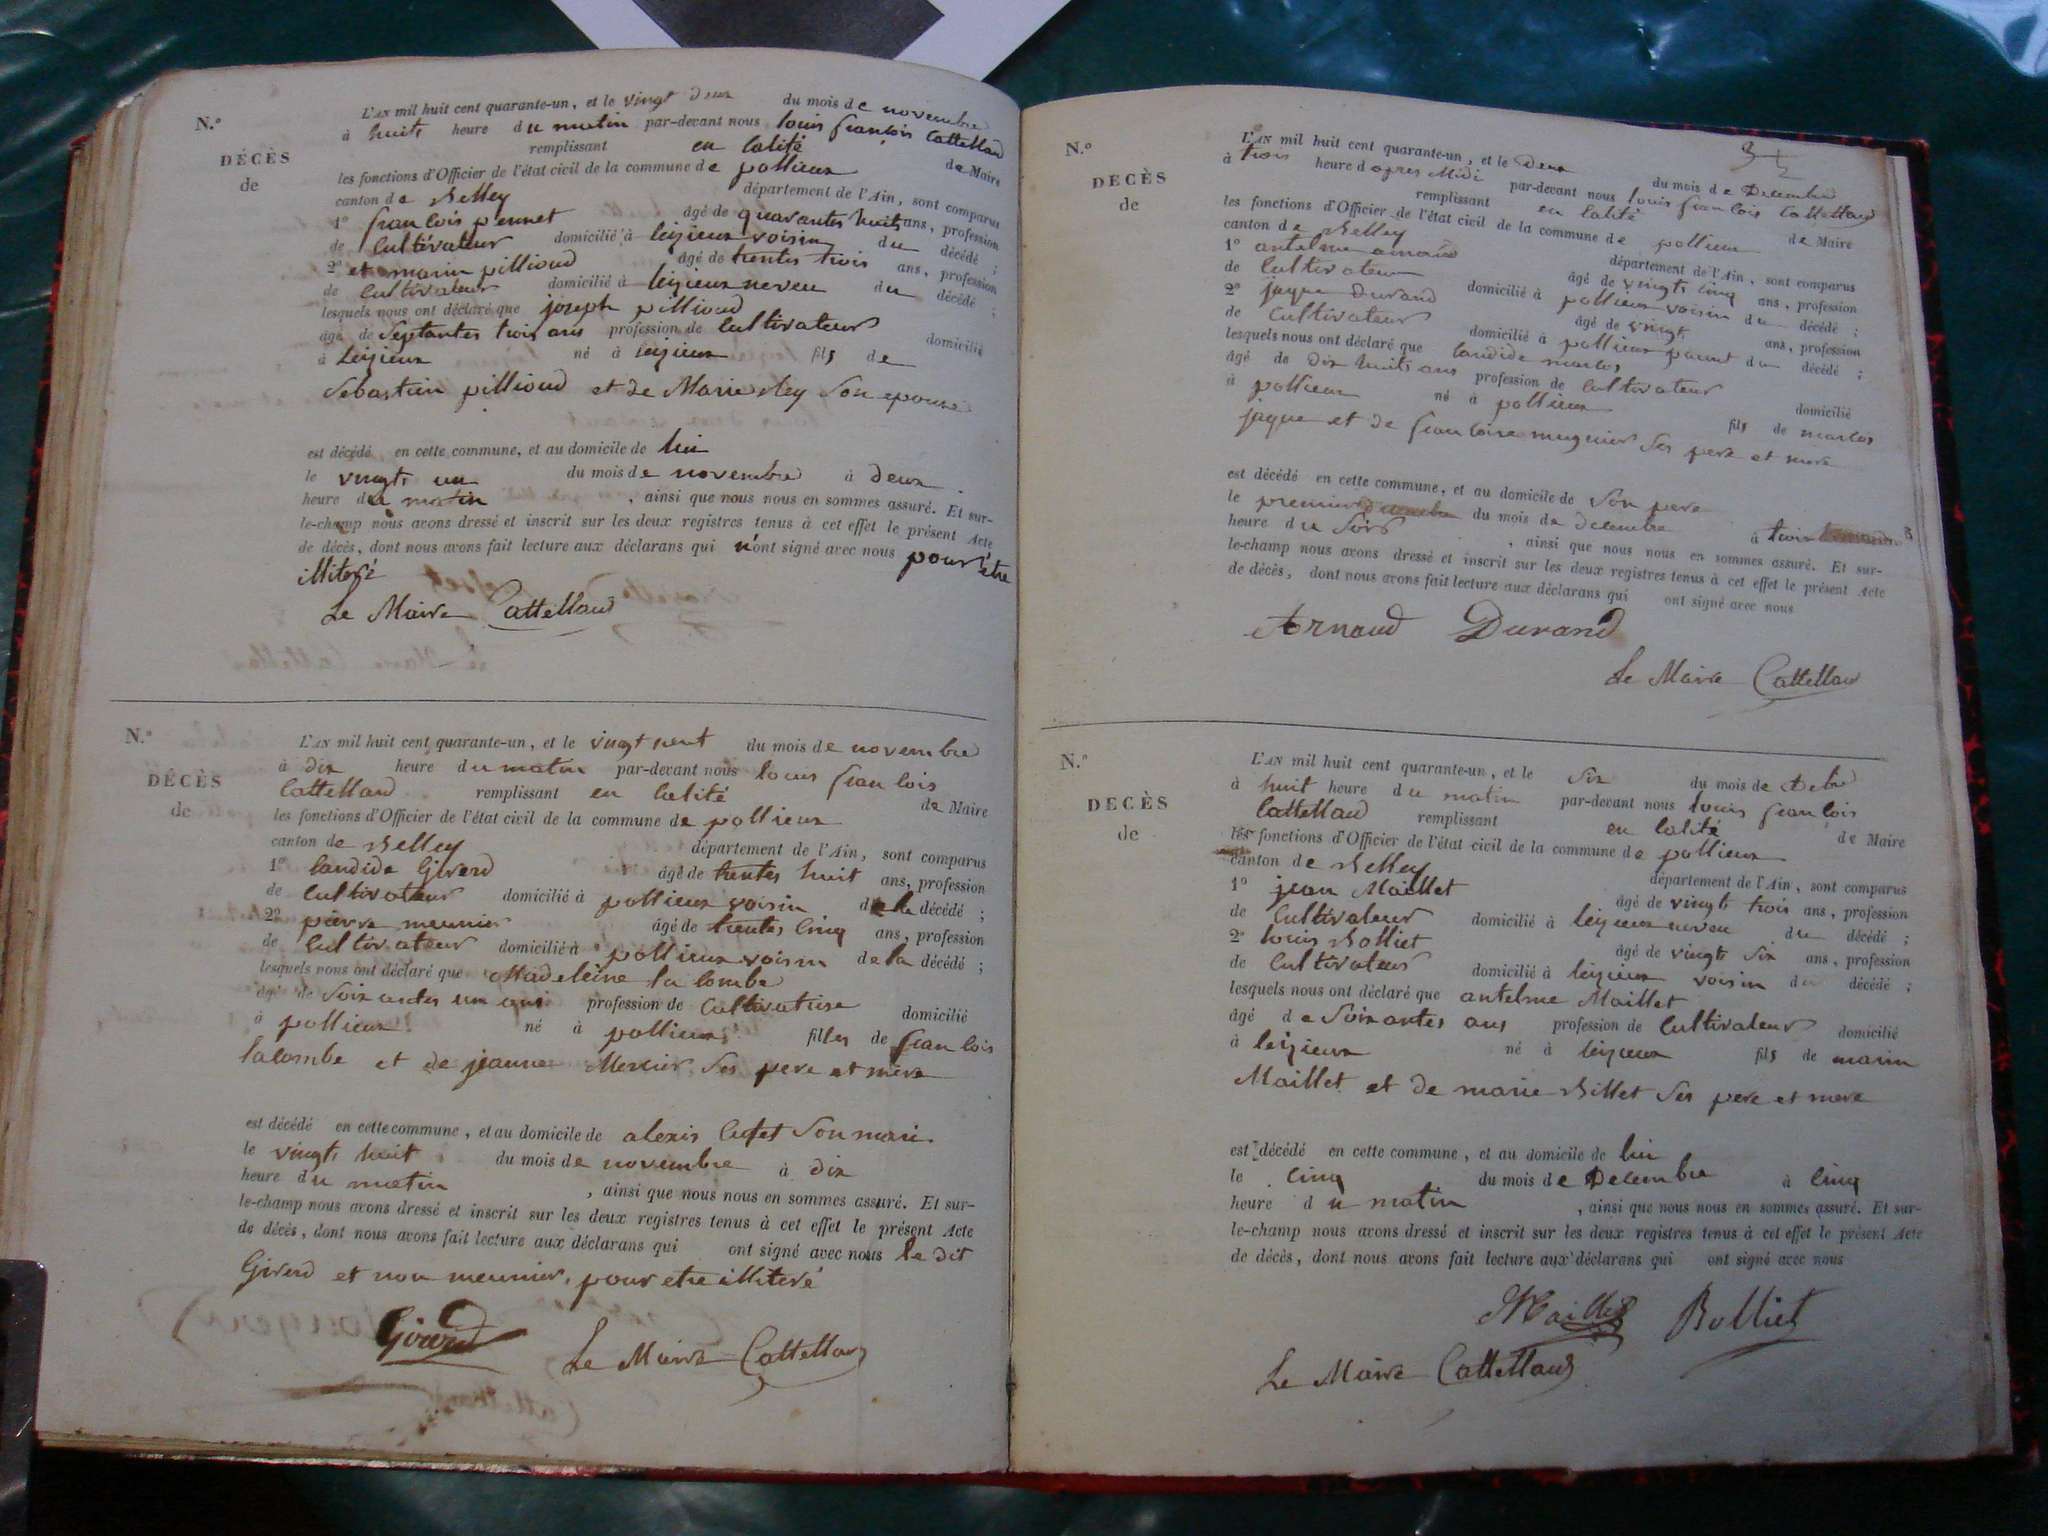 N.º
DÉCÈS
de
L'AN mil huit cent quarante-un, et le vingt deux du mois de novembre
à huits heure du matin par-devant nous louis françois Cattelland
remplissant en calité de Maire
les fonctions d'Officier de l'état civil de la commune de pollieux
canton de Belley département de l'Ain, sont comparus
1º françois pennet âgé de quarantes huits ans, profession
de Cultivateur domicilié à leizieux voisin du décédé ;
2º et marin pillioud âgé de trentes trois ans, profession
de Cultivateur domicilié à leizieux neveu du décédé ;
lesquels nous ont déclaré que joseph pillioud
âgé de Septantes trois ans profession de Cultivateur domicilié
à Leizieux né à leizieux fils de
Sebastien pillioud et de Marie Rey Son epouse
est décédé en cette commune, et au domicile de lui
le vingts un du mois de novembre à deux
heure du matin , ainsi que nous nous en sommes assuré. Et sur-
le-champ nous avons dressé et inscrit sur les deux registres tenus à cet effet le présent Acte
de décès, dont nous avons fait lecture aux déclarans qui n'ont signé avec nous pour être
illiteré
Le Maire Cattelland
N.º
DÉCÈS
de
L'AN mil huit cent quarante-un, et le vingt neuf du mois de novembre
à dix heure du matin par-devant nous louis françois
Cattelland remplissant en calité de Maire
les fonctions d'Officier de l'état civil de la commune de pollieux
canton de Belley département de l'Ain, sont comparus
1º Candide Girerd âgé de trentes huit ans, profession
de Cultivateur domicilié à pollieux voisin de la décédé ;
2º pierre meunier âgé de trentes cinq ans, profession
de Cultivateur domicilié à pollieux voisin de la décédé ;
lesquels nous ont déclaré que Madeleine la combe
âgé de Soixantes un ans profession de Cultivatrise domicilié
à pollieux né à pollieux filles de françois
lacombe et de jeanne Mercier Ses pere et mere
est décédé en cette commune, et au domicile de alexis Cufet Son mari
le vingts huit du mois de novembre à dix
heure du matin , ainsi que nous nous en sommes assuré. Et sur-
le-champ nous avons dressé et inscrit sur les deux registres tenus à cet effet le présent Acte
de décès, dont nous avons fait lecture aux déclarans qui ont signé avec nous le dit
Girerd et non meunier, pour etre illiteré
Girerd
Le Maire Cattelland
N.º
DÉCÈS
de
L'AN mil huit cent quarante-un, et le Deux du mois de Decembre
à trois heure d'apres Midi par-devant nous louis françois Cattelland
remplissant en calité de Maire
les fonctions d'Officier de l'état civil de la commune de pollieux
canton de Belley département de l'Ain, sont comparus
1º antelme arnaud âgé de vingts cinq ans, profession
de Cultivateur domicilié à pollieux voisin du décédé ;
2º jaque Durand âgé de vingt ans, profession
de Cultivateur domicilié à pollieux parent du décédé ;
lesquels nous ont déclaré que Candide marlos
âgé de dix huits ans profession de Cultivateur domicilié
à pollieux né à pollieux fils de marlos
jaque et de françoise mugnier Ses pere et mere
est décédé en cette commune, et au domicile de Son pere
le premier du mois de decembre à trois
heure du Soir , ainsi que nous nous en sommes assuré. Et sur-
le-champ nous avons dressé et inscrit sur les deux registres tenus à cet effet le présent Acte
de décès, dont nous avons fait lecture aux déclarans qui ont signé avec nous
Arnaud Durand
Le Maire Cattelland
N.º
DÉCÈS
de
L'AN mil huit cent quarante-un, et le Six du mois de Debre
à huit heure du matin par-devant nous louis françois
Cattelland remplissant en calité de Maire
les fonctions d'Officier de l'état civil de la commune de pollieux
canton de Belley département de l'Ain, sont comparus
1º jean Maillet âgé de vingts trois ans, profession
de Cultivateur domicilié à leizieux neveu du décédé ;
2º louis Bolliet âgé de vingts Six ans, profession
de Cultivateur domicilié à leizieux voisin du décédé ;
lesquels nous ont déclaré que antelme Maillet
âgé de Soixantes ans profession de Cultivateur domicilié
à leizieux né à leizieux fils de marin
Maillet et de marie Billet Ses pere et mere
est décédé en cette commune, et au domicile de lui
le cinq du mois de Decembre à cinq
heure du matin , ainsi que nous nous en sommes assuré. Et sur-
le-champ nous avons dressé et inscrit sur les deux registres tenus à cet effet le présent Acte
de décès, dont nous avons fait lecture aux déclarans qui ont signé avec nous
Maillet Bolliet
Le Maire Cattelland